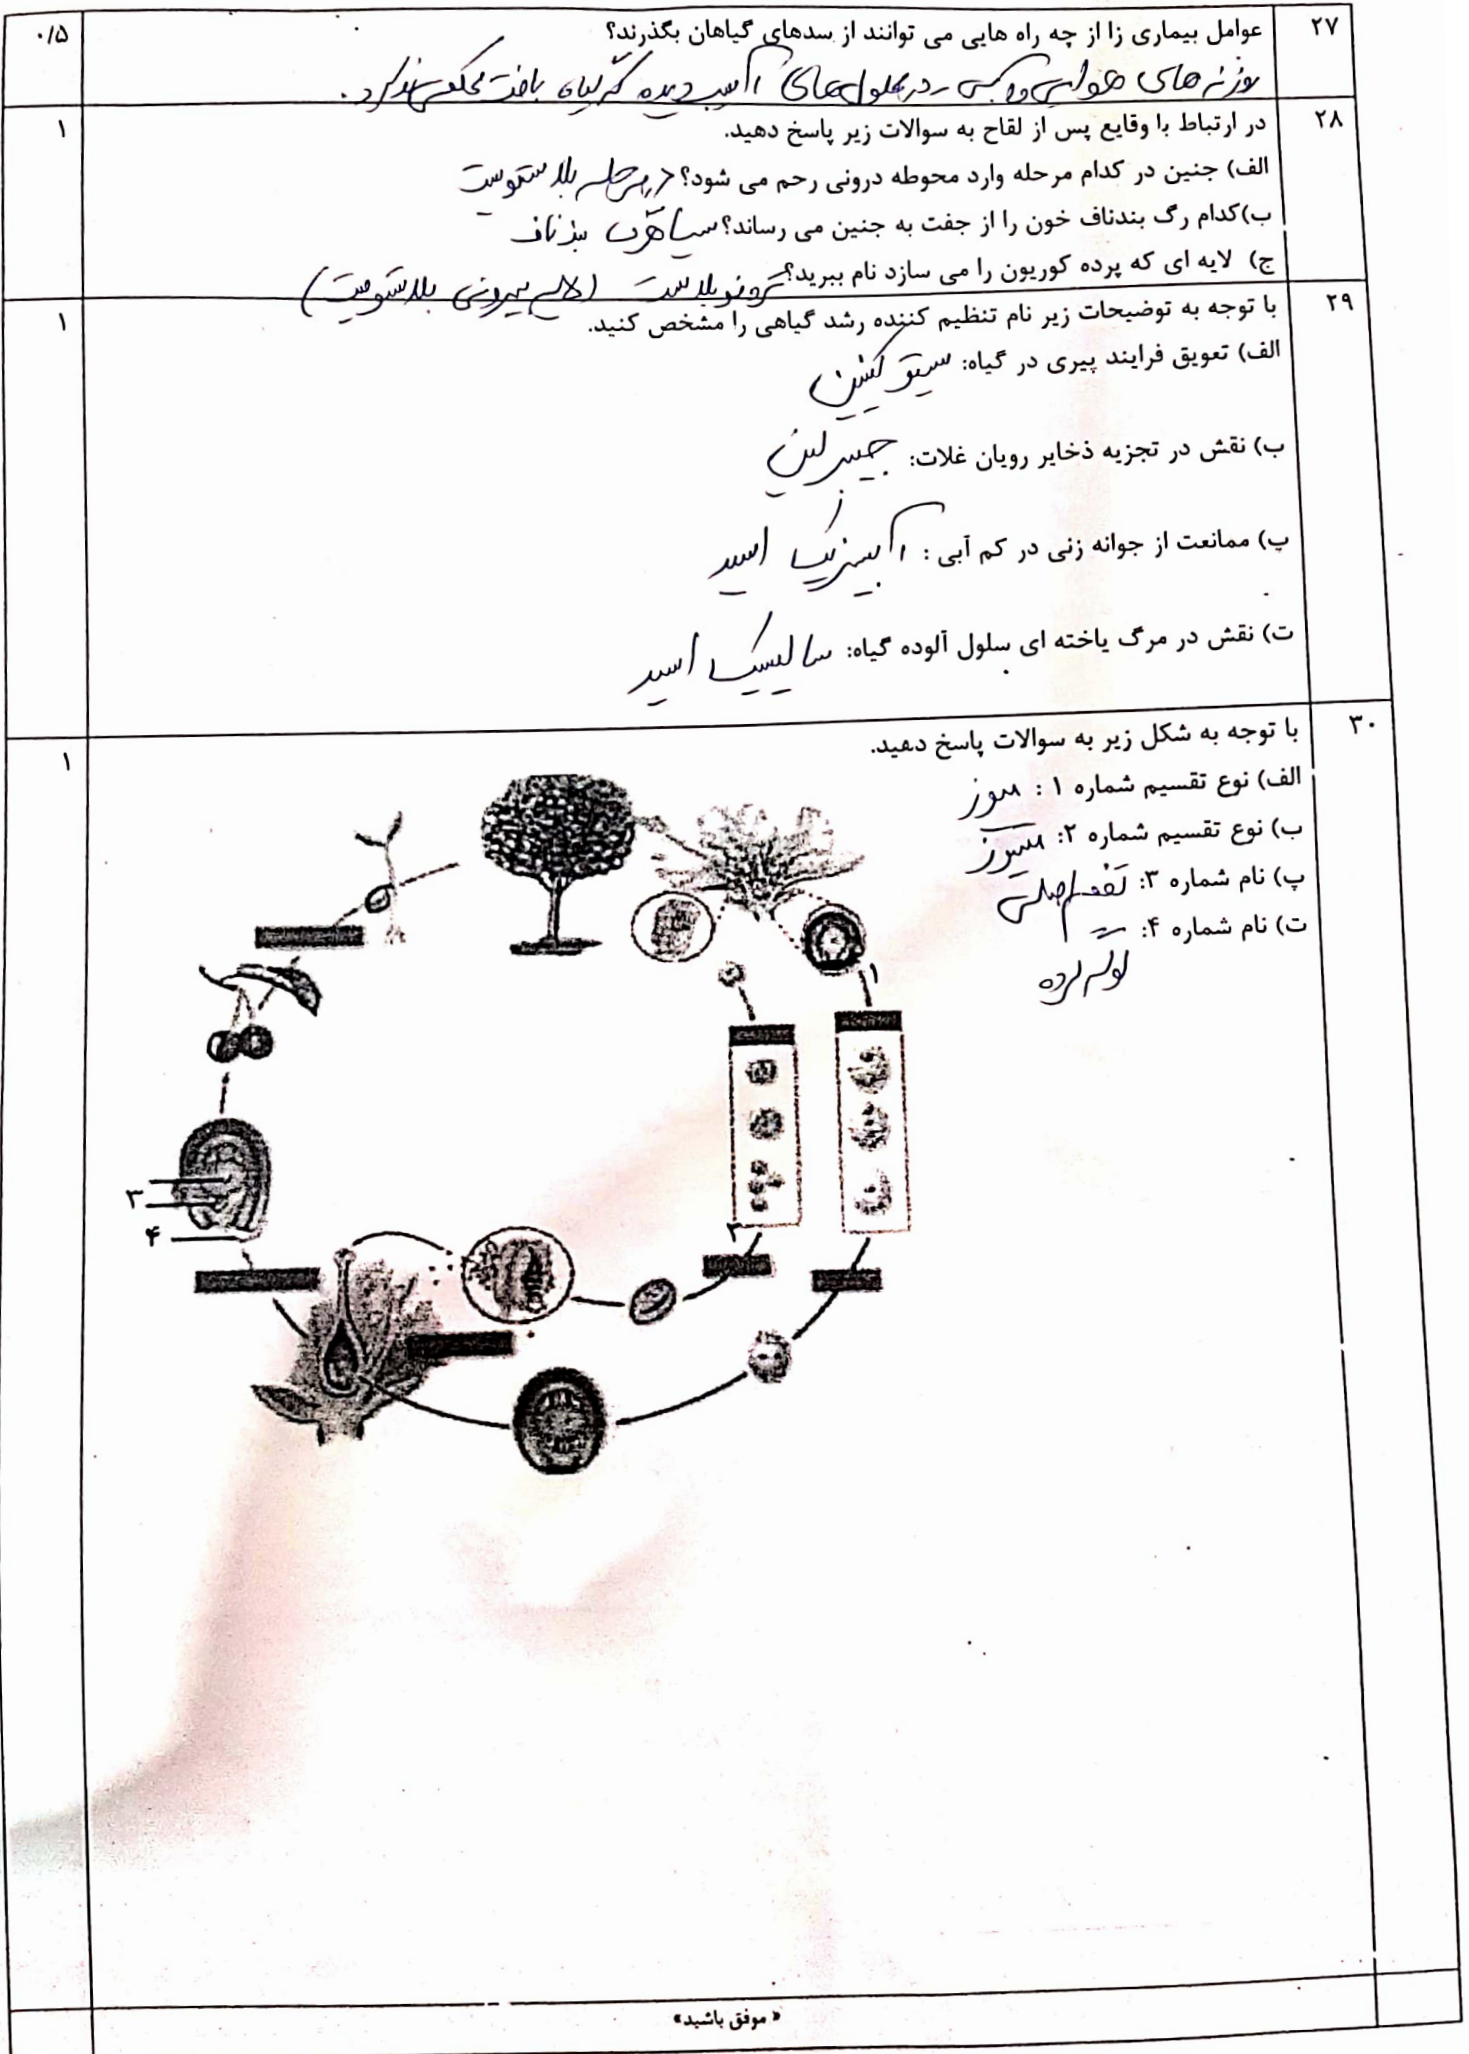 ۲۷ عوامل بیماری زا از چه راه هایی می توانند از سدهای گیاهان بگذرند؟ ۰/۵
روزنه های هوایی و آبی - در سلول های آسیب دیده گیاه بافت
۲۸ در ارتباط با وقایع پس از لقاح به سوالات زیر پاسخ دهید. ۱
الف) جنین در کدام مرحله وارد محوطه درونی رحم می شود؟ در مرحله بلاستوسیت
ب)کدام رگ بندناف خون را از جفت به جنین می رساند؟ سیاهرگ بندناف
ج) لایه ای که پرده کوریون را می سازد نام ببرید؟ تروفوبلاست (لایه بیرونی بلاستوسیت)
۲۹ با توجه به توضیحات زیر نام تنظیم کننده رشد گیاهی را مشخص کنید. ۱
الف) تعویق فرایند پیری در گیاه: سیتوکینین
ب) نقش در تجزیه ذخایر رویان غلات: جیبرلین
پ) ممانعت از جوانه زنی در کم آبی : آبسیزیک اسید
ت) نقش در مرگ یاخته ای سلول آلوده گیاه: سالیسیلیک اسید
۳۰ با توجه به شکل زیر به سوالات پاسخ دهید. ۱
الف) نوع تقسیم شماره ۱ : میوز
ب) نوع تقسیم شماره ۲: میتوز
پ) نام شماره ۳: تخم اصلی
ت) نام شماره ۴:
لوله گرده
۱
۲
۳
۴
« موفق باشید»